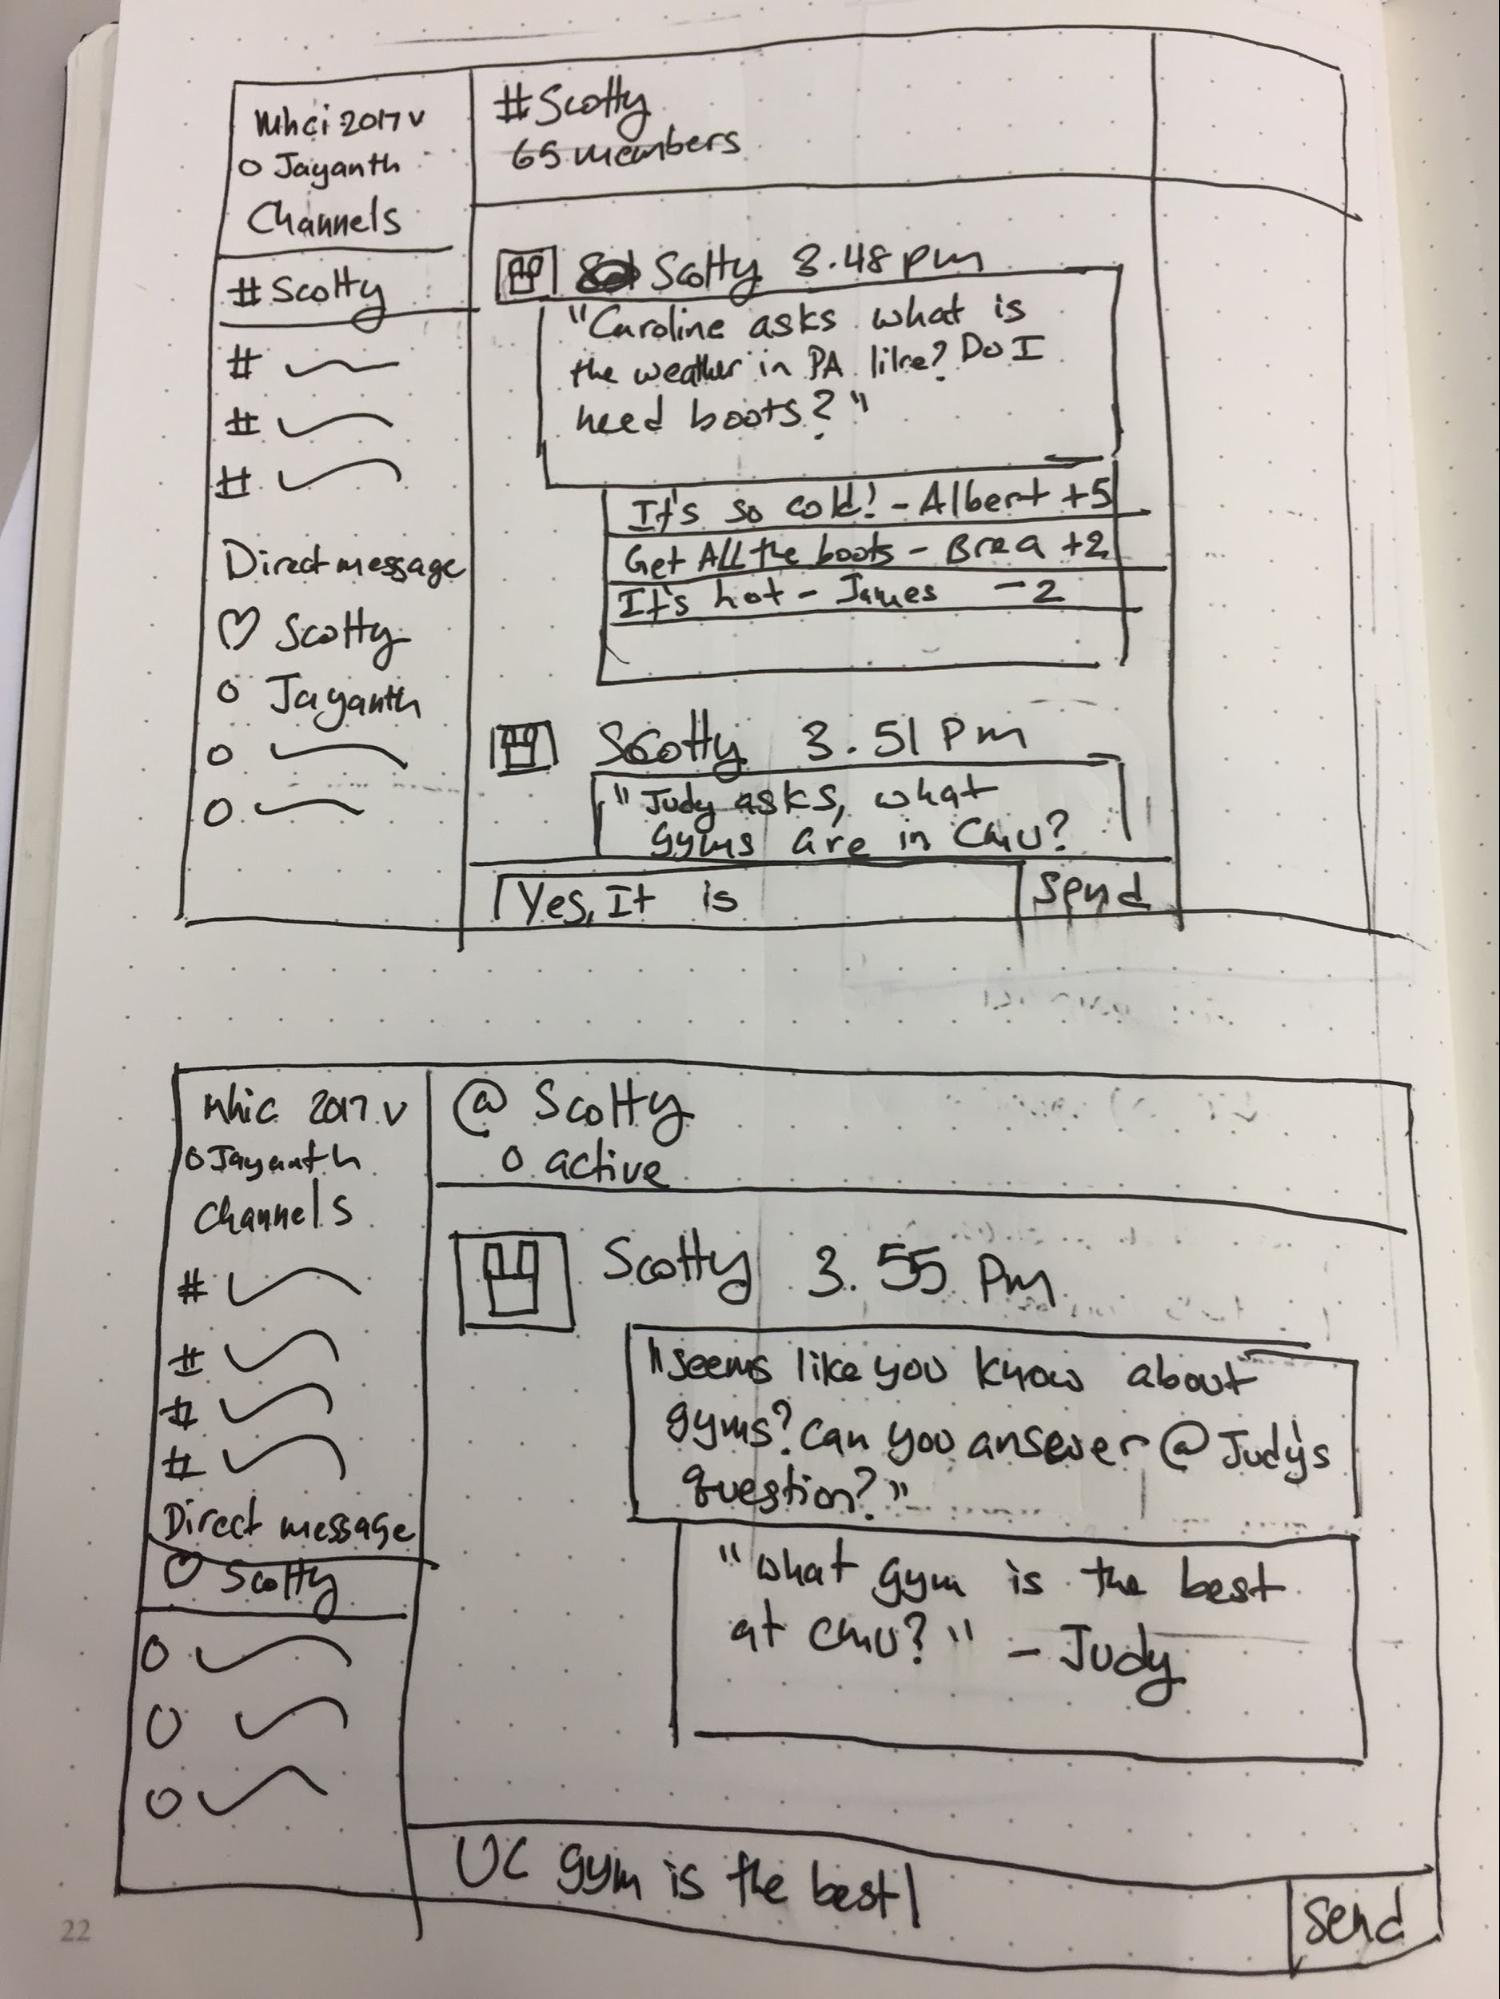 Mhci 2017 v
O Jayanth
Channels
# Scotty
#
#
#
Direct message
♡ Scotty
O Jayanth
O
O
#Scotty
65 members
Scotty 3.48 pm
"Caroline asks what is
the weather in PA like? Do I
need boots?"
It's so cold! - Albert +5
Get All the boots - Brea +2
It's hot - James -2
Scotty 3.51 Pm
"Judy asks, what
gyms are in CMU?
Yes, It is
Send
Mhic 2017 v
O Jayanth
Channels
#
#
#
#
Direct message
♡ Scotty
O
O
O
@ Scotty
O active
Scotty 3.55 Pm
"seems like you know about
gyms? Can you answer @Judy's
question?"
"what gym is the best
at CMU?" - Judy
UC gym is the best|
Send
22